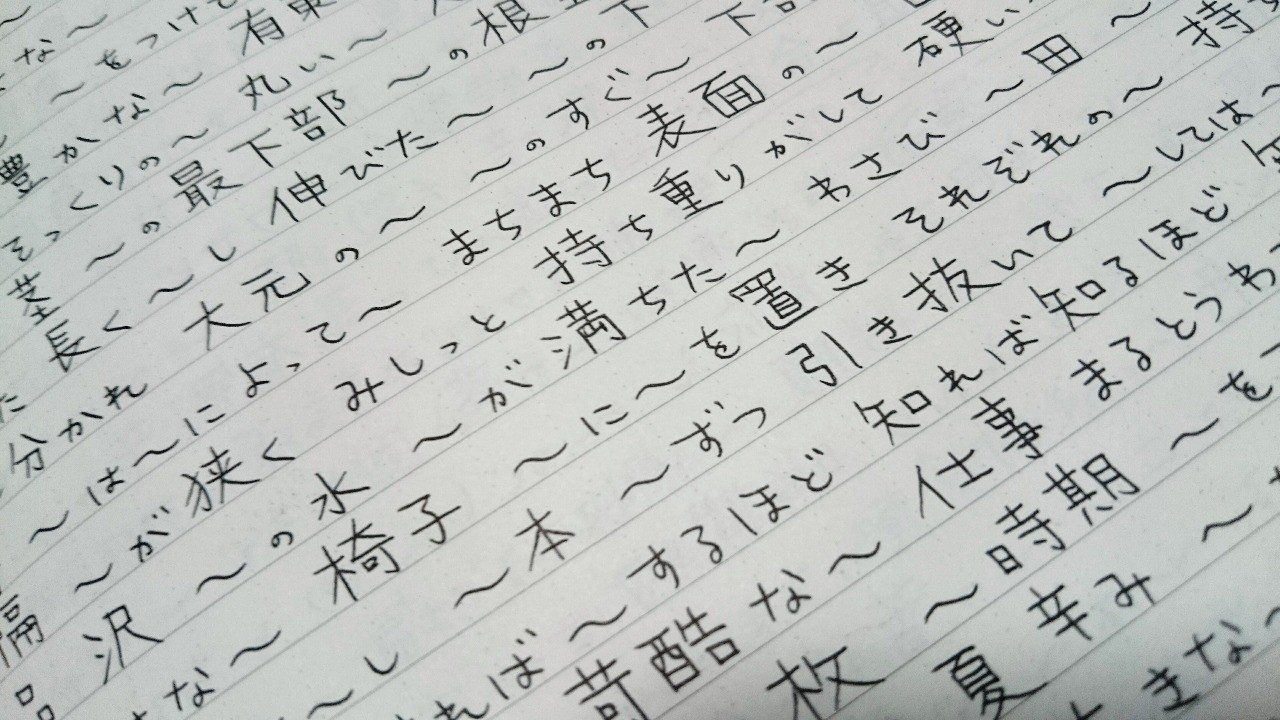 な～
～をつけて
豊かな～ 有
そっくりの～ 丸い～
茎 ～の最下部 ～の根
長く～し 伸びた～ ～の下
た 分かれ 大元の～ ～のすぐ～ 下部
～は～に よって～ まちまち 表面の～
隔 ～が狭く みしっと 持ち重りがして 硬い
品 沢 ～の水 ～が満ちた～ わさび ～田 ～
な～ 椅子 ～に～を置き それぞれの～ 持
～し ～本 ～ずつ 引き抜いて ～しては～
れば～するほど 知れば知るほど
苛酷な～ 仕事 まるとうわ
枚 ～時期 ～を
夏 辛み ～
きな～